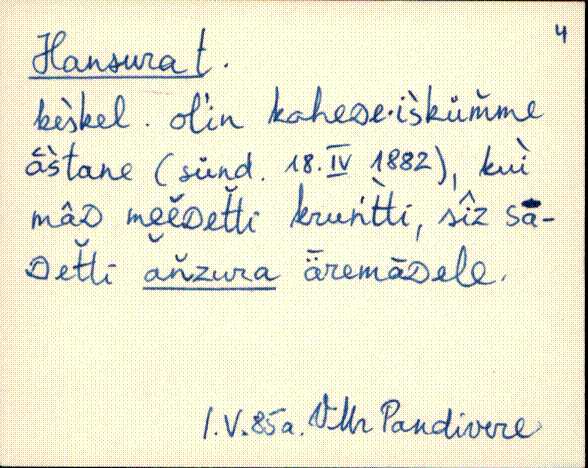 4
Hansurat.
kèskel. ol'in kahede·iškùm̆me
ăštane (sünd. 18. IV 1882), kuì
mâD mẹẹ̆Deťti kruńťti, sîz sa-
Deťti ăňzura äremāDele.
1.V.85a. VMr Pandivere